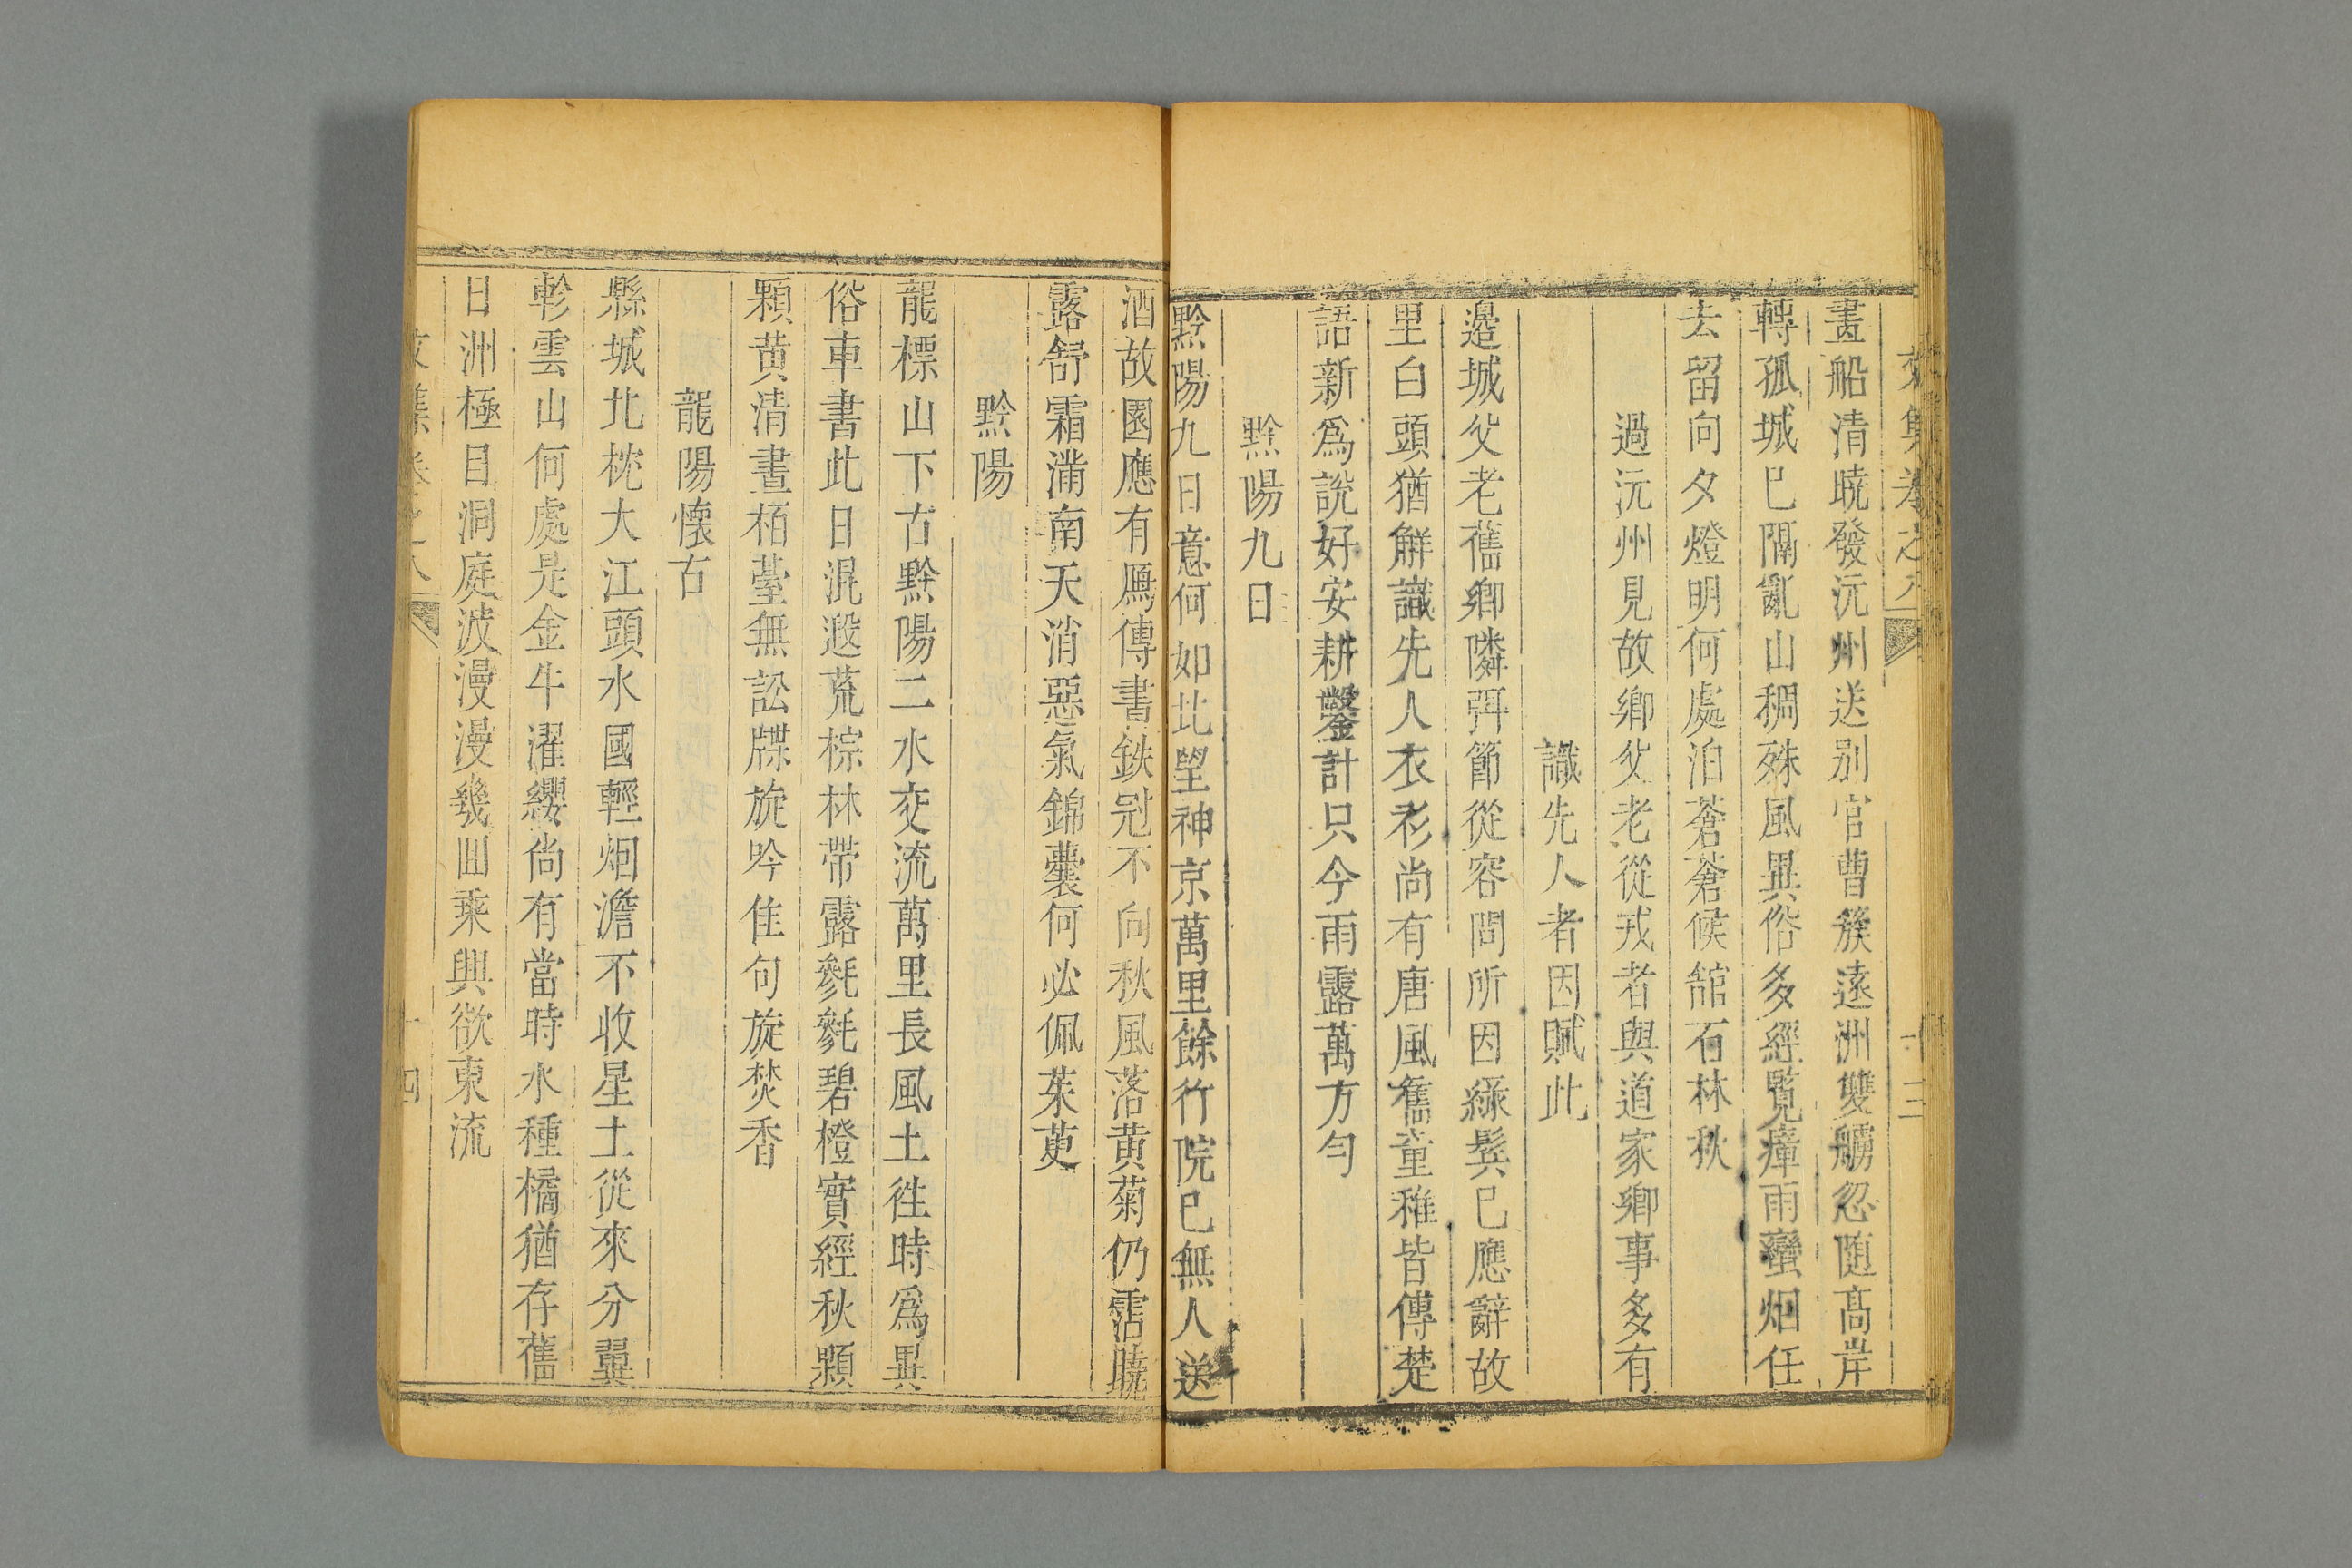 文集卷之八
十三
畫船清曉發沅州送別官曹簇遠洲雙艣忽随髙岸
轉孤城巳隔亂山稠殊風異俗多經覧瘴雨蠻烟任
去留向夕燈明何處泊蒼蒼候舘石林秋
過沅州見故鄉父老從戎者與道家鄉事多有
識先人者因賦此
邉城父老舊鄉隣弭節從容問所因緑鬂巳應辭故
里白頭猶解識先人衣衫尚有唐風舊童稚皆傳楚
語新爲說好安耕鑿計只今雨露萬方勻
黔陽九日
黔陽九日意何如北望神京萬里餘行院巳無人送
酒故園應有鴈傳書鉄冠不向秋風落黄菊仍霑曉
露舒霜滿南天消惡氣錦囊何必佩茱萸
黔陽
龍標山下古黔陽二水交流萬里長風土徃時爲異
俗車書此日混遐荒棕林帶露毿毿碧橙實經秋顆
顆黄清晝栢臺無訟牒旋吟佳句旋焚香
龍陽懐古
縣城北枕大江頭水國輕烟澹不收星土從來分翼
軫雲山何處是金牛濯纓尚有當時水種橘猶存舊
日洲極目洞庭波漫漫幾囬乘興欲東流
文集卷之八
十四